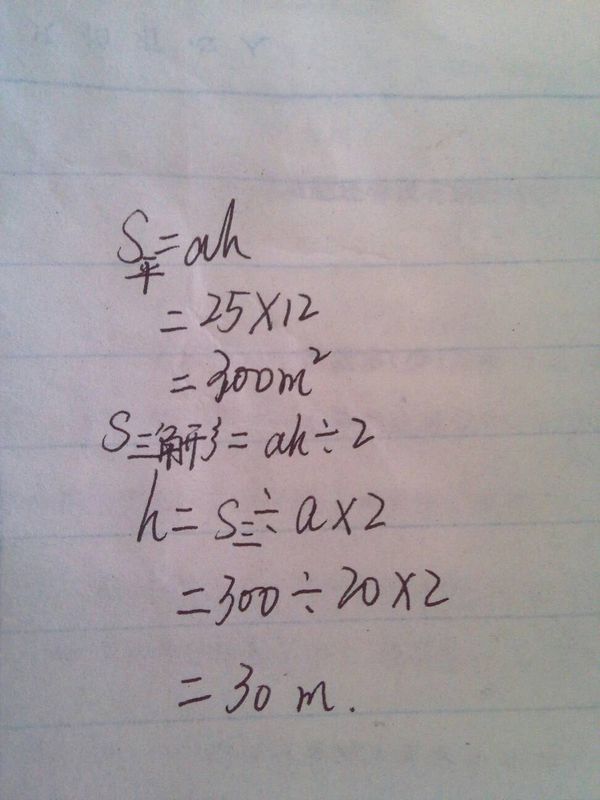 S平=ah
=25×12
=300m²
S三角形=ah÷2
h=S三÷a×2
=300÷20×2
=30 m.